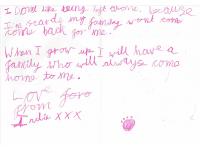 I Dont like being left alone, because
I'm scared my family wont come
come back for me.
When I grow up I will have a
family who will always come
home to me.
Love
from
India xxx